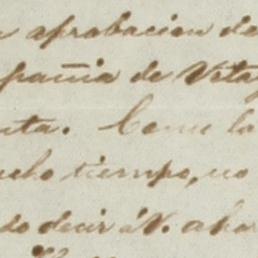 aprobacion de
pañia de Vita
nta. Como lo
ucho tiempo, no
do decir á V. ahor